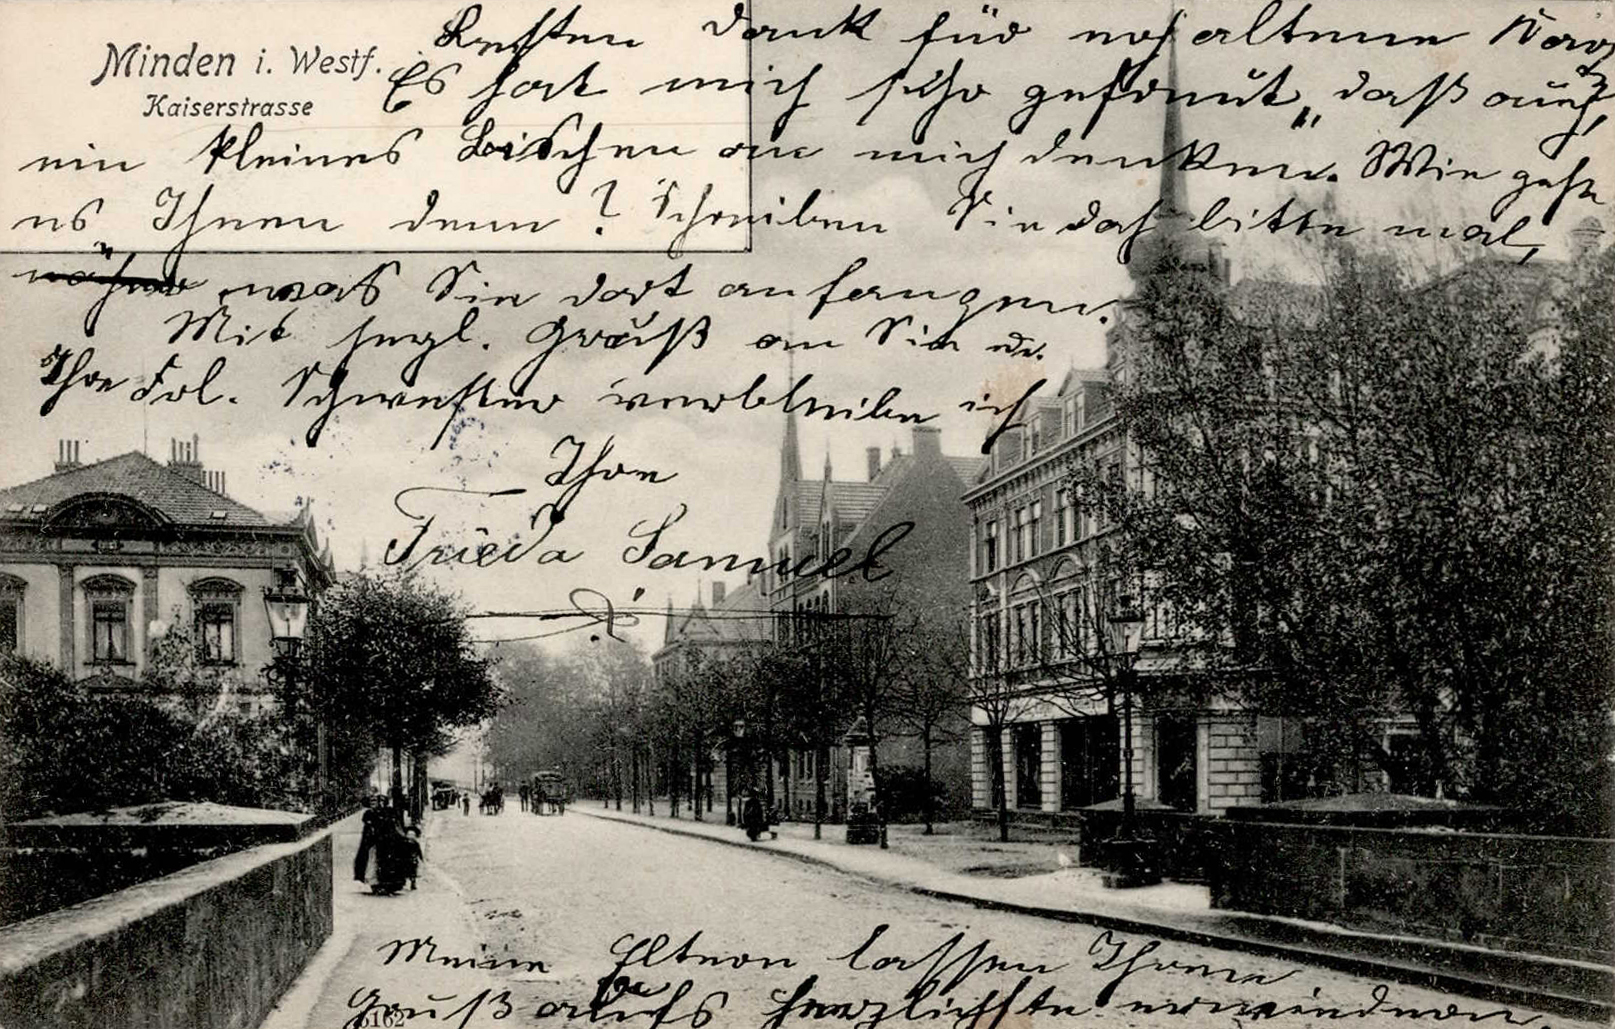 Minden i. Westf.
Kaiserstrasse
Besten Dank für erhaltene Karte
Es hat mich sehr gefreut, daß auch
ein kleines Bischen an mich denken. Wie geht
es Ihnen denn? Schreiben Sie doch bitte mal,
was Sie dort anfangen.
Mit herzl. Gruß an Sie u.
Ihre Frl. Schwester verbleibe ich
Ihre
Frieda Samuel
Meine Eltern lassen Ihren
Gruß aufs herzlichste erwiedern